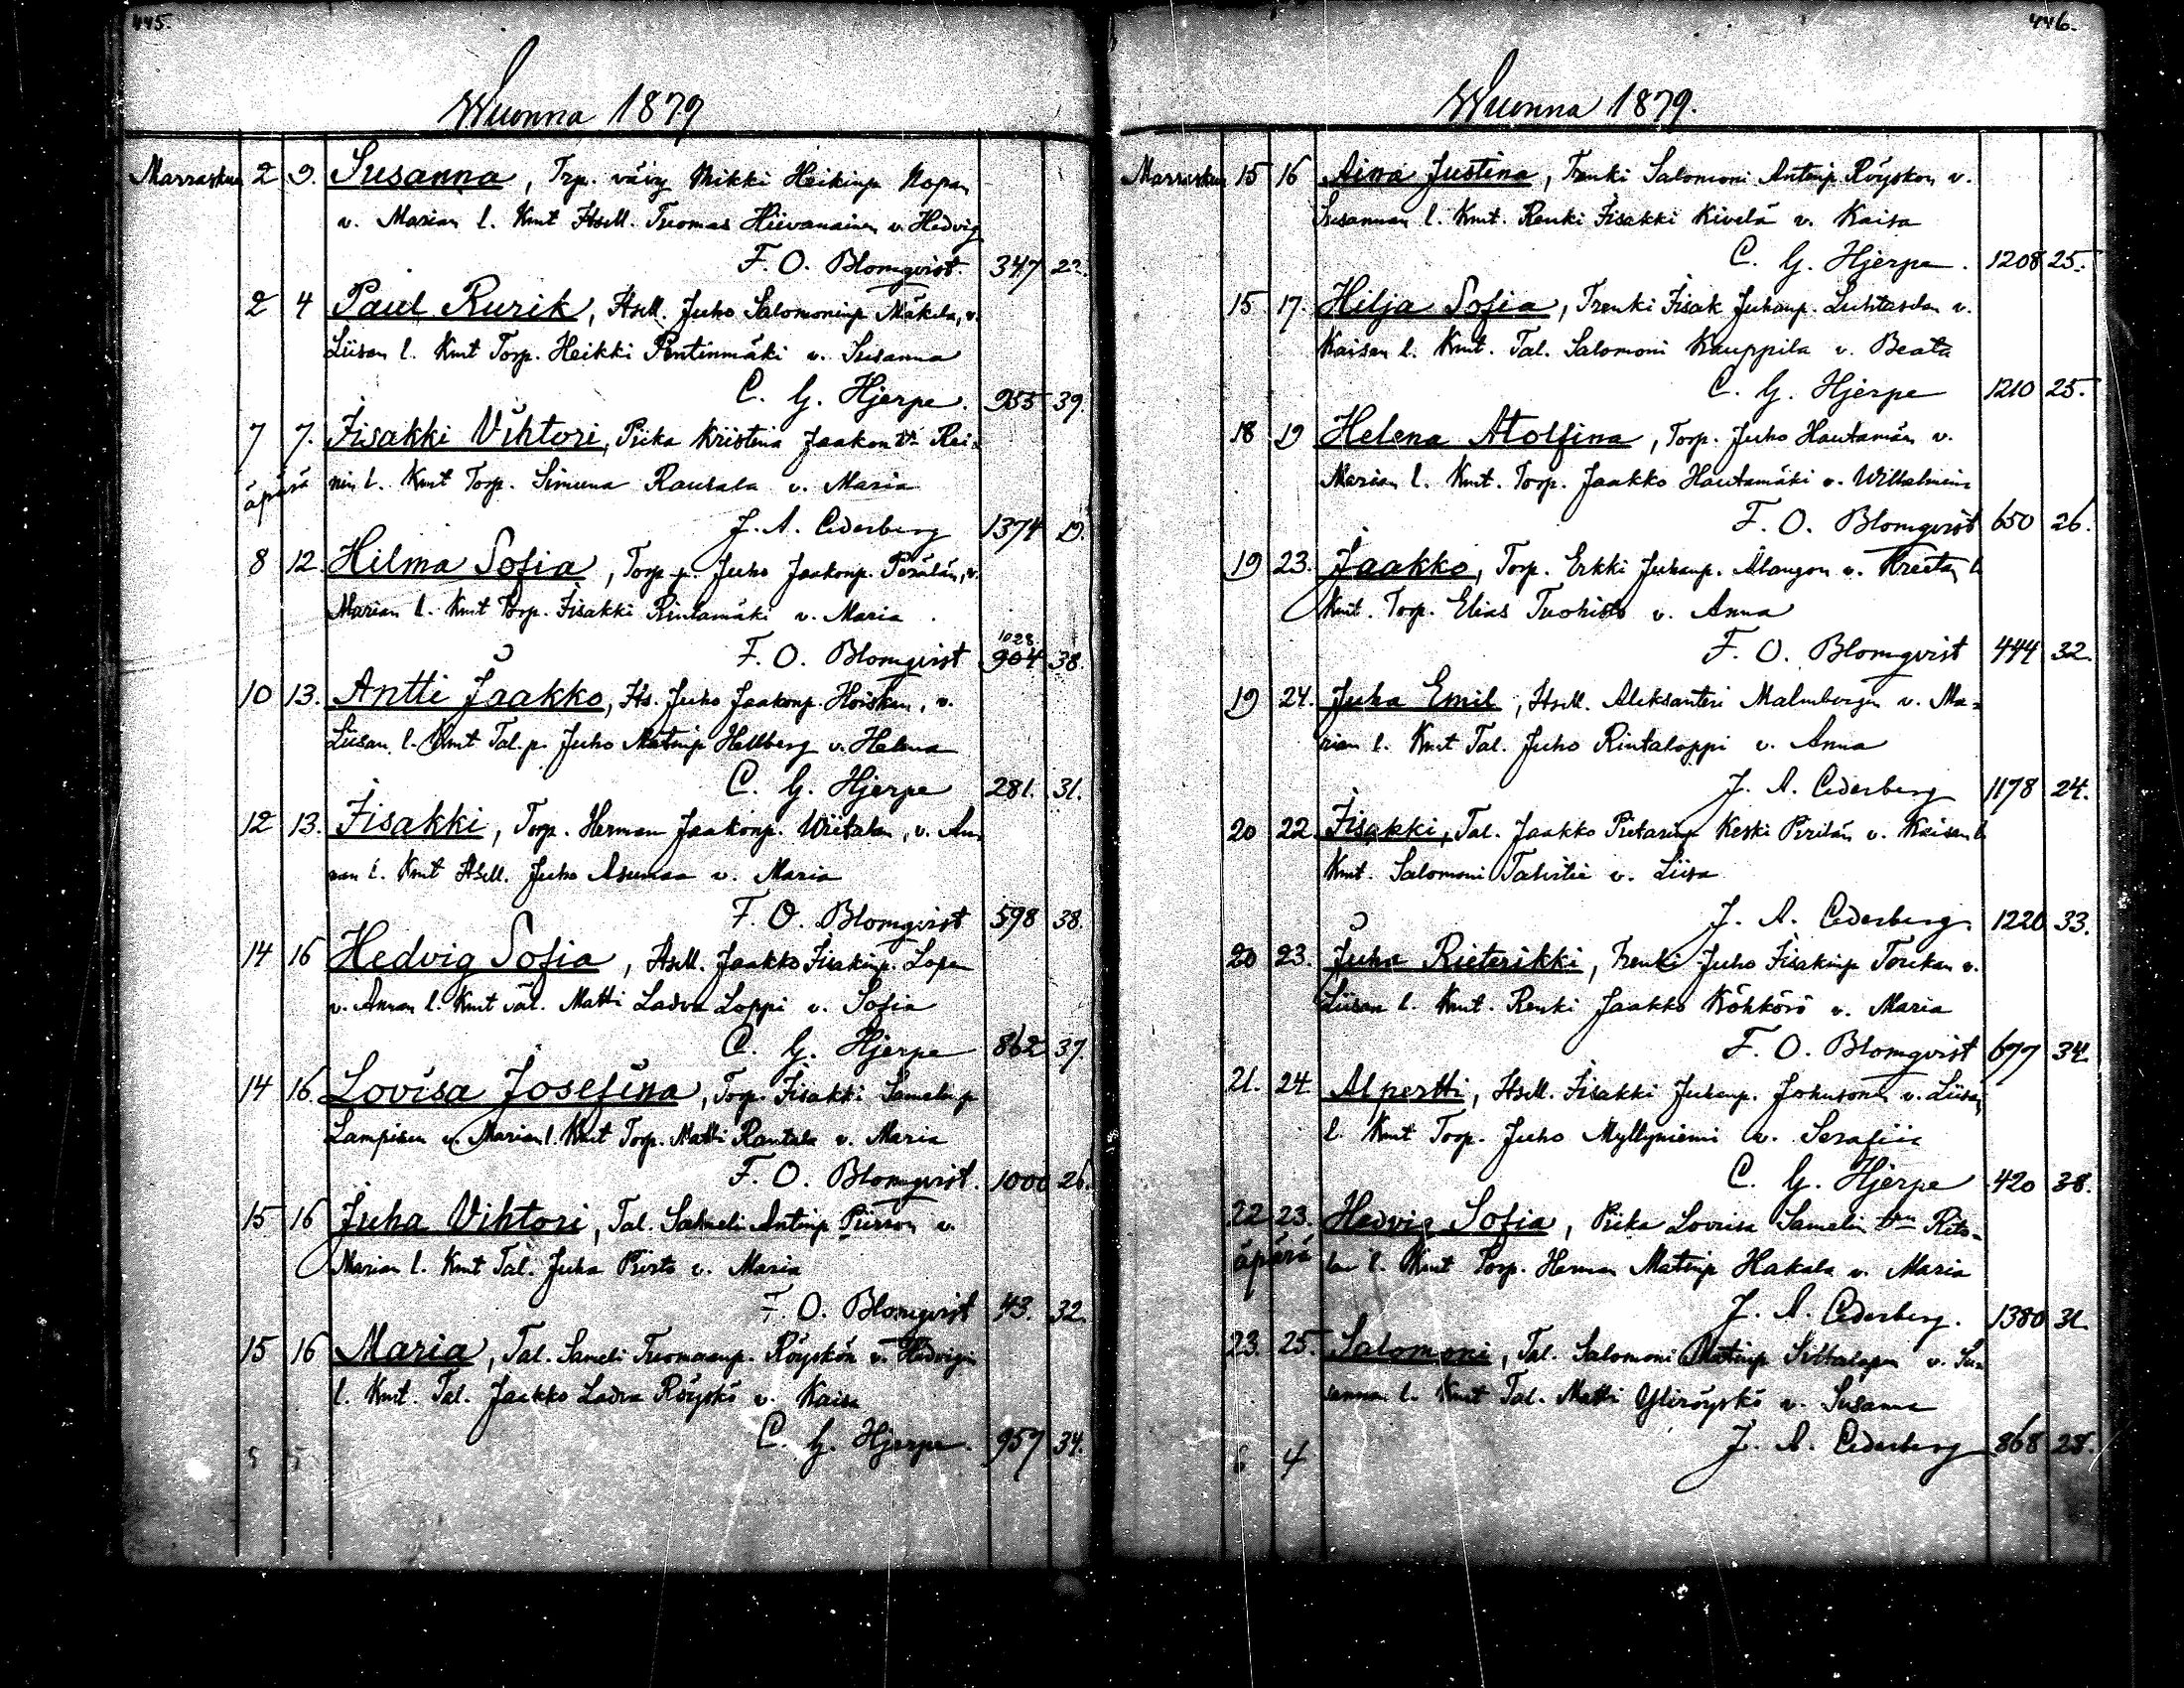 445.
Wuonna 1879
Marraskuu 2 9. Susanna, Trp. väwy Mikki Heikinp. Kopan
v. Marian l. Kmt Itsell. Tuomas Hiivanainen v. Hedvig
F. O. Blomqvist. 347 22.
2 4 Paul Rurik, Itsell. Juho Salomoninp. Mäkelän, v.
Liisan l. Kmt Torp. Heikki Pentinmäki v. Susanna
C. G. Hjerpe. 955 39.
7 7. Iisakki Vihtori, Piika Kristina Jaakon tr. Rei-
äpärä nin l. Kmt Torp. Simuna Rausala v. Maria
J. A. Cederberg 1374 19.
8 12. Hilma Sofia, Torp. p. Juho Jaakonp. Perälän, v.
Marian l. Kmt Torp. Iisakki Rintamäki v. Maria
1028.
F. O. Blomqvist 904 38.
10 13. Antti Jaakko, Its. Juho Jaakonp. Hoiskan, v.
Liisan l. Kmt Tal. p. Juho Matinp Hellberg v. Helena
C. G. Hjerpe 281. 31.
12 13. Iisakki, Torp. Herman Jaakonp. Wiitalan, v. An-
nan l. Kmt Itsell. Juho Asumaa v. Maria
F. O. Blomqvist 598 38.
14 16 Hedvig Sofia, Itsell. Jaakko Iisakinp. Lopen
v. Annan l. Kmt Tal. Matti Ladva Loppi v. Sofia
C. G. Hjerpe 862 37.
14 16. Lovisa Josefina, Torp. Iisakki Samelinp
Lampisen v. Marian l. Kmt Torp. Matti Rantala v. Maria
F. O. Blomqvist. 1000 26.
15 16 Juha Vihtori, Tal. Sameli Antinp Piirron v.
Marian l. Kmt Tal. Juha Piirto v. Maria
F. O. Blomqvist 43. 32.
15 16 Maria, Tal. Sameli Tuomaanp. Röyskön v. Hedvigin
l. Kmt. Tal. Jaakko Ladva Röyskö v. Kaisa
C. G. Hjerpe. 957 34.
5 5
446.
Wuonna 1879.
Marraskuu 15 16 Aina Justina, Trenki Salomoni Antinp. Röyskön v.
Susannan l. Kmt. Renki Iisakki Kivelä v. Kaisa
C. G. Hjerpe. 1208 25.
15 17. Hilja Sofia, Trenki Iisak Juhanp. Luhtaselan v.
Kaisan l. Kmt. Tal. Salomoni Kauppila v. Beata
C. G. Hjerpe 1210 25.
18 19 Helena Atolfina, Torp. Juho Hautamäen v.
Marian l. Kmt. Torp. Jaakko Hautamäki v. Wilhelmina
F. O. Blomqvist 650 26.
19 23. Jaakko, Torp. Erkki Juhanp. Alangon v. Kreetan l.
Kmt. Torp. Elias Tuohisto v. Anna
F. O. Blomqvist 444 32.
19 24. Juha Emil, Itsell. Aleksanteri Malmbergin v. Ma-
rian l. Kmt Tal. Juho Rintaloppi v. Anna
J. A. Cederberg 1178 24.
20 22 Iisakki, Tal. Jaakko Pietarinp Keski Pirilän v. Kaisan l.
Kmt. Salomoni Tahitie v. Liisa
J. A. Cederberg. 1220 33.
20 23. Juha Rieterikki, Trenki Juho Iisakinp Torikan v.
Liisan l. Kmt. Renki Jaakko Köhkörö v. Maria
F. O. Blomqvist 677 34.
21. 24. Alpertti, Itsell. Iisakki Juhanp. Johnsonin v. Liisan
l. Kmt Torp. Juho Myllyniemi v. Serafiia
C. G. Hjerpe 420 38.
22 23. Hedvig Sofia, Piika Lovisa Samelin trn Rito-
äpärä lan l. Kmt Torp. Herman Matinp Hakala v. Maria
J. A. Cederberg. 1380 31.
23. 25. Salomoni, Tal. Salomoni Matinp Siltalopen v. Su-
sannan l. Kmt Tal. Matti Yliröyskö v. Susanna
J. A. Cederberg 868 28.
6 4